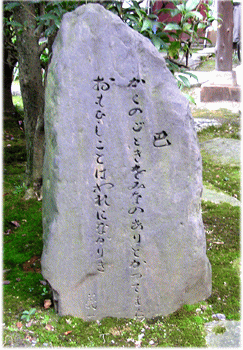 巴
かくのごときをみなのありとかつてまた
おもひしことはわれになかりき